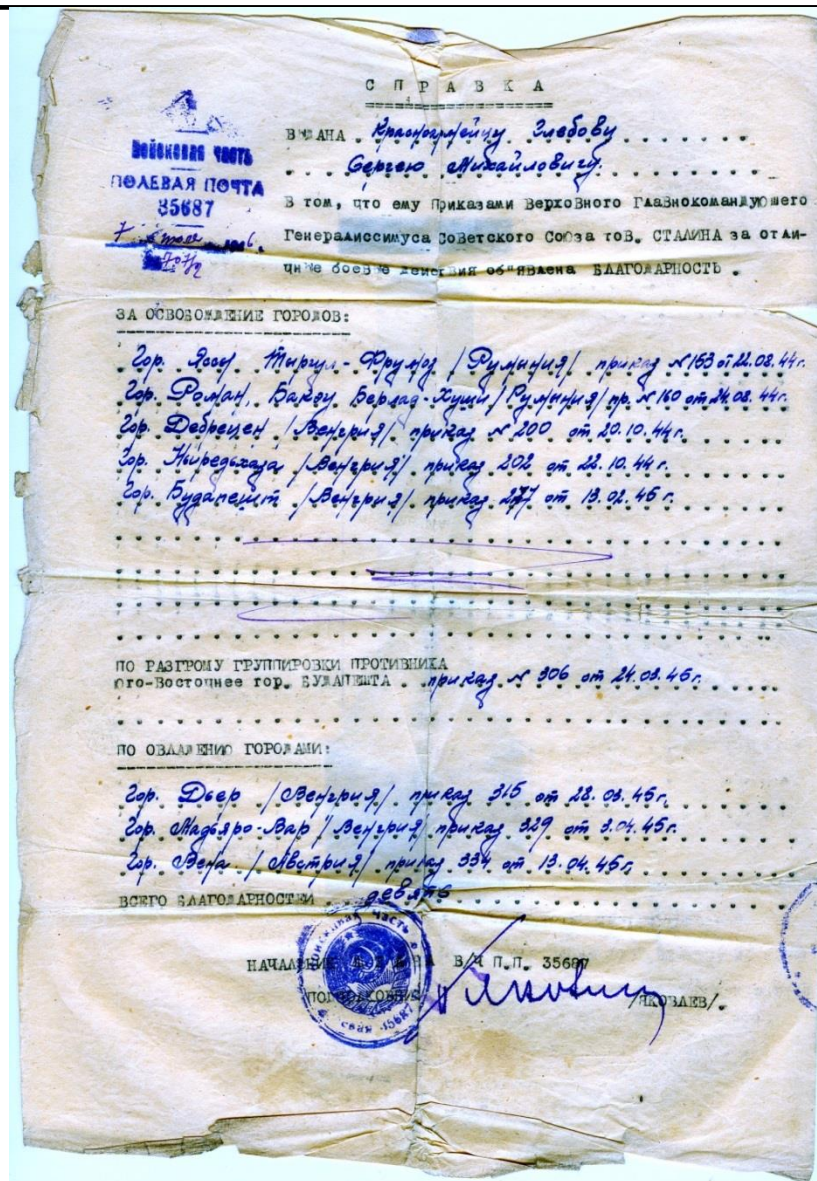 СПРАВКА
Войсковая часть
ПОЛЕВАЯ ПОЧТА
35687
7 1946.
ВЫДАНА Красноармейцу Глебову
Сергею Михайловичу.
В том, что ему Приказами Верховного Главнокомандующего
Генералиссимуса Советского Союза тов. СТАЛИНА за отли-
чные боевые действия об"явлена БЛАГОДАРНОСТЬ.
ЗА ОСВОБОЖДЕНИЕ ГОРОДОВ:
Гор. Яссы Тыргул-Фрумоз /Румыния/ приказ № 163 от 22.08.44г.
Гор. Роман, Бакэу Берлад-Хуши /Румыния/ пр. № 160 от 24.08.44г.
Гор. Дебрецен /Венгрия/ приказ № 200 от 20.10.44г.
Гор. Ньиредьхаза /Венгрия/ приказ 202 от 22.10.44г.
Гор. Будапешт /Венгрия/ приказ 277 от 13.02.45г.
ПО РАЗГРОМУ ГРУППИРОВКИ ПРОТИВНИКА
юго-Восточнее гор. БУДАПЕШТА приказ № 306 от 24.03.45г.
ПО ОВЛАДЕНИЮ ГОРОДАМИ:
Гор. Двер /Венгрия/ приказ 315 от 28.03.45г.
Гор. Мадьяро-Вар /Венгрия/ приказ 329 от 3.04.45г.
Гор. Вена /Австрия/ приказ 334 от 13.04.45г.
ВСЕГО БЛАГОДАРНОСТЕЙ девять
НАЧАЛЬНИК В/Ч П.П. 35687
ПОДПОЛКОВНИК /ЯКОВЛЕВ/.